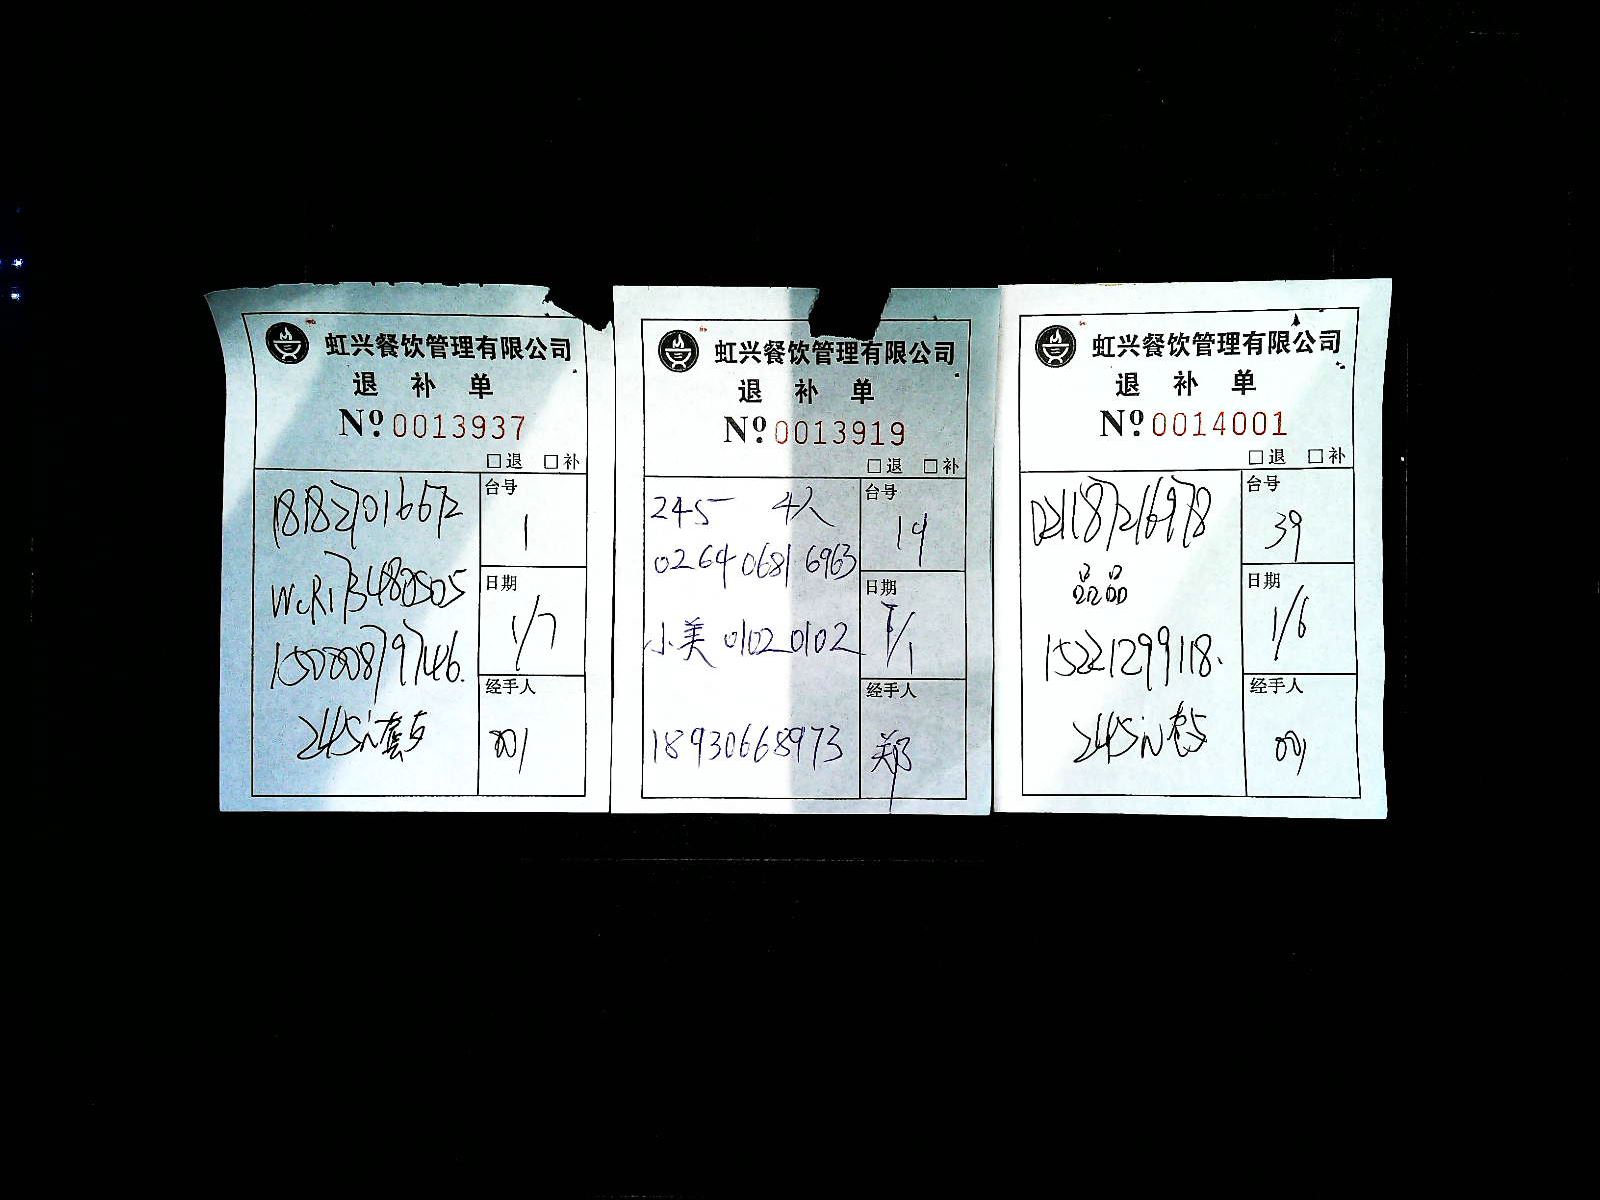 虹兴餐饮管理有限公司
退 补 单
Nº 0013937
□退 □补
台号
1
日期
1/7
经手人
001
虹兴餐饮管理有限公司
退 补 单
Nº 0013919
□退 □补
245 4人
0264 0681 6963
小美 0102 0102
18930668973
台号
14
日期
经手人
郑
虹兴餐饮管理有限公司
退 补 单
Nº 0014001
□退 □补
15221299118.
台号
39
日期
1/6
经手人
001